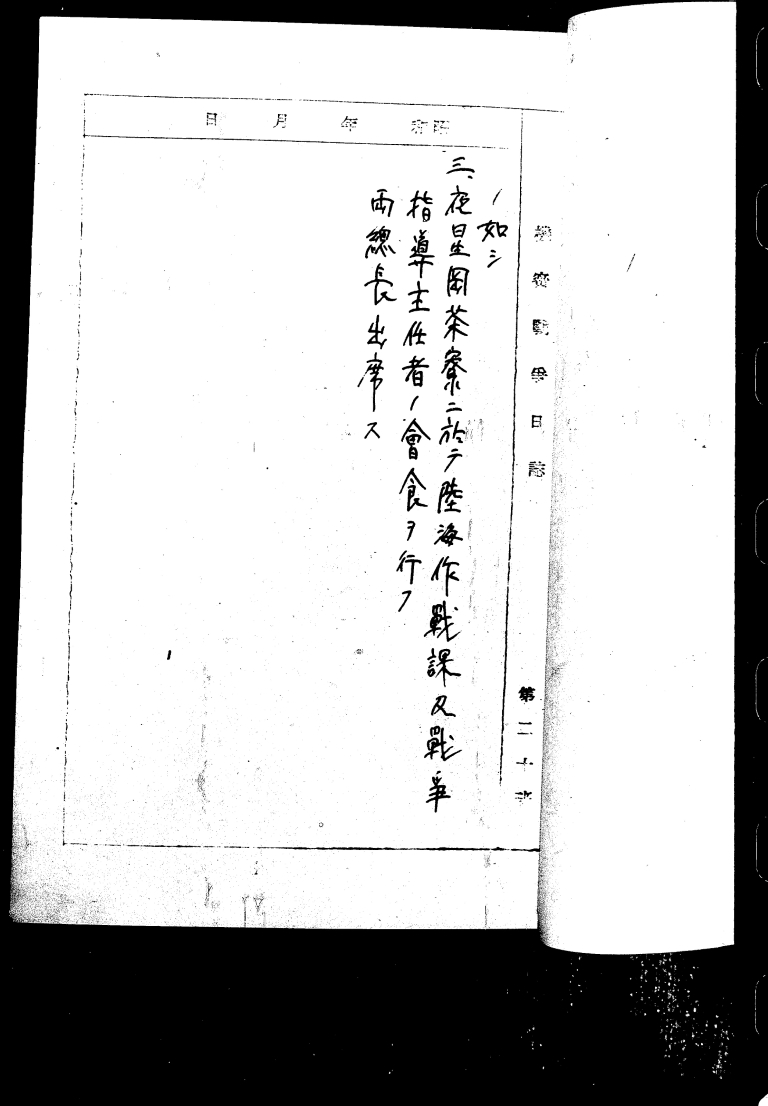 機密戰爭日誌
第二十班
昭和 年 月 日
ノ如シ
三、夜星岡茶寮ニ於テ陸海作戰課及戰爭
指導主任者ノ會食ヲ行フ
両總長出席ス